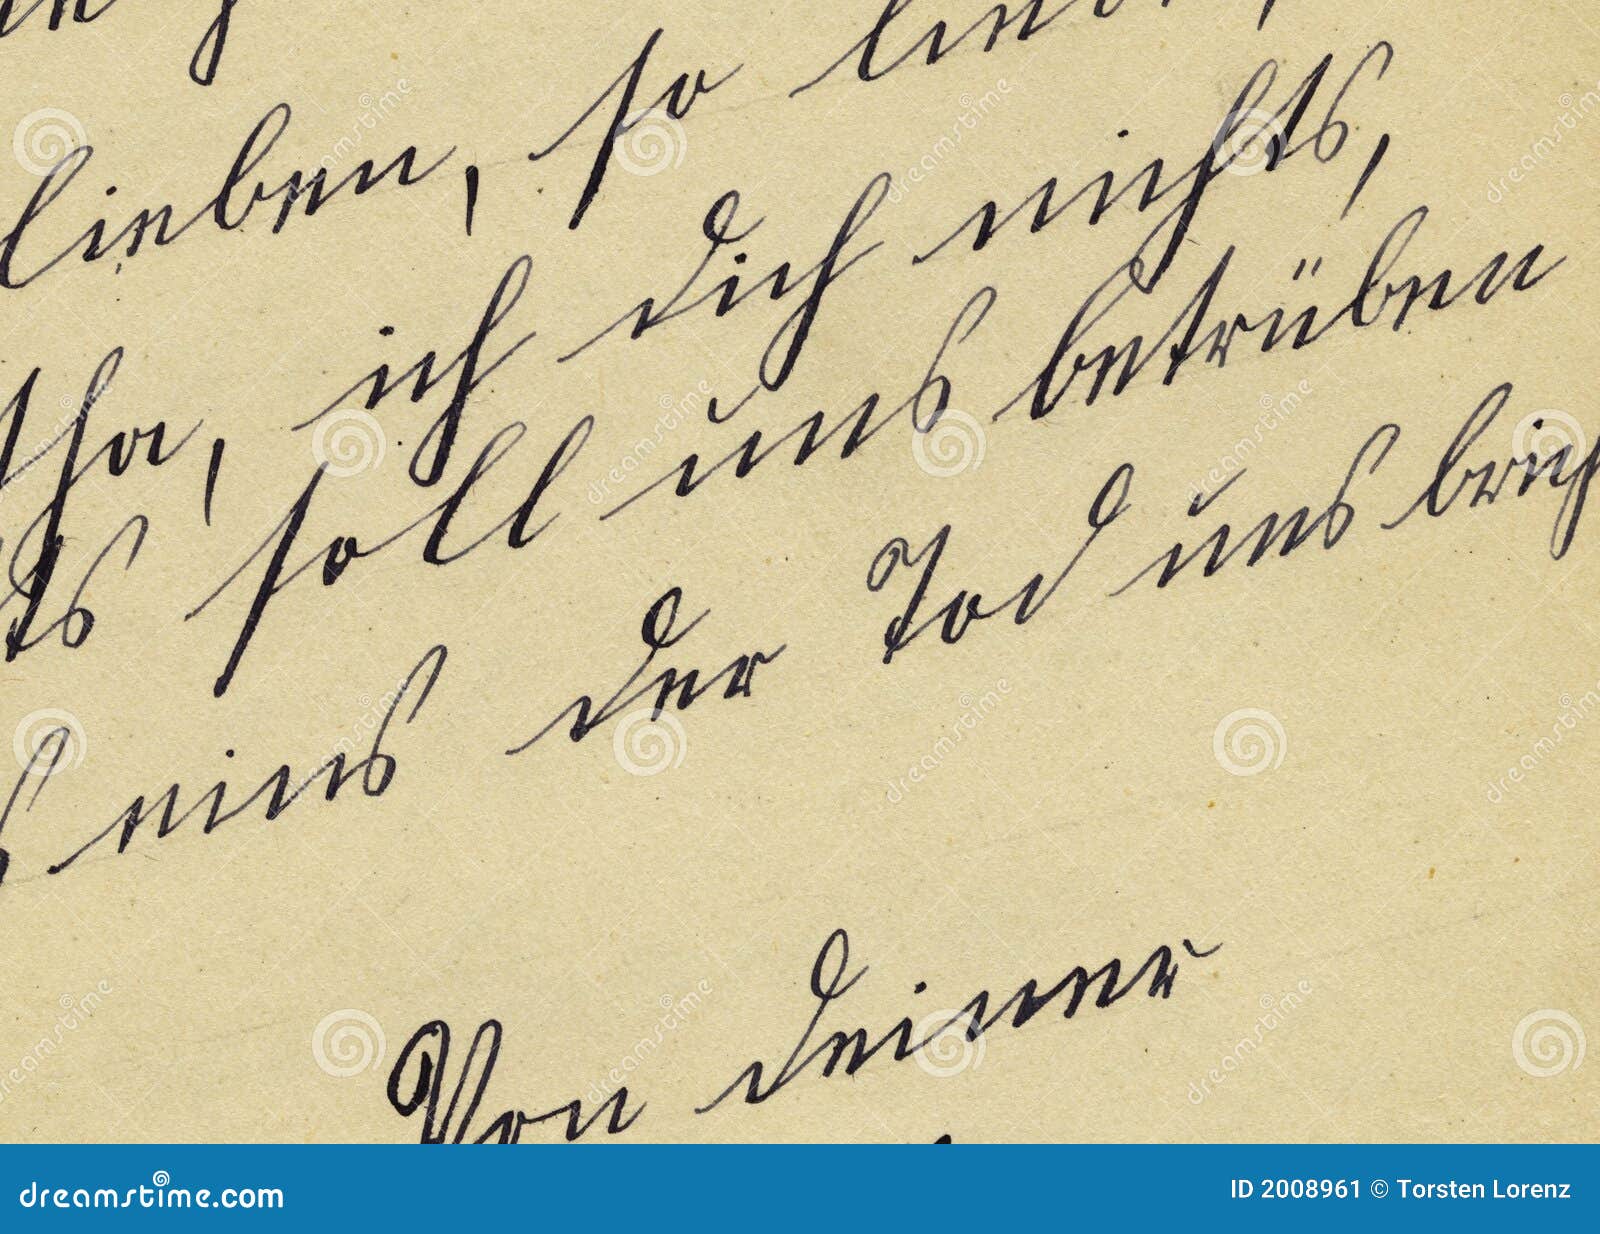 lieben, so
tha, ich dich nichts,
ts soll uns betrüben
s eins der Tod uns brich
Von deiner
dreamstime.com ID 2008961 © Torsten Lorenz